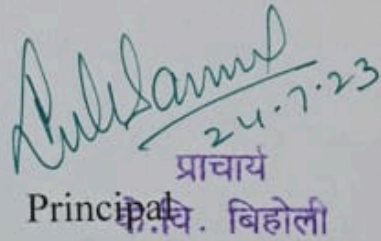 24.7.23
प्राचार्य
Principal के.वि. बिहोली